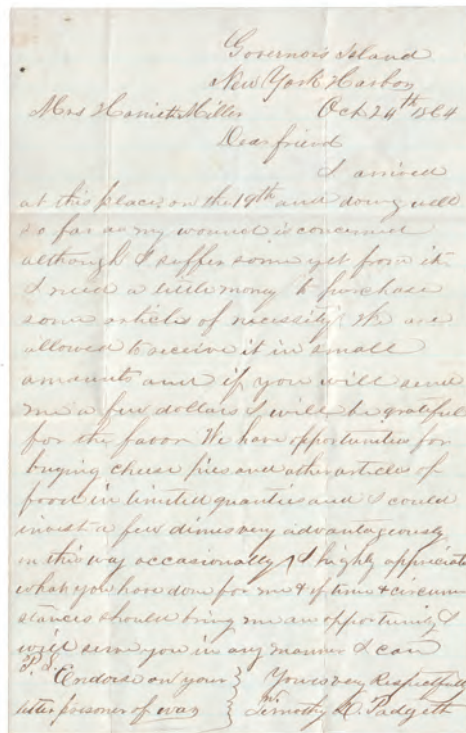 Governor's Island
New York Harbor
Mrs Harriet Miller Oct 24th 1864
Dear friend
I arrived
at this place on the 19th and doing well
so far as my wound is concerned
although I suffer some yet from it
I need a little money to purchase
some articles of necessity We are
allowed to receive it in small
amounts and if you will send
me a few dollars I will be grateful
for the favor We have opportunities for
buying cheese pies and other articles of
food in limited quantities and I could
invest a few dimes very advantageously
in this way occasionally I highly appreciate
what you have done for me & if time & circum
stances should bring me an opportunity I
will serve you in any manner I can
P.S. Endorse on your
letter prisoner of war
Yours very Respectfully
Timothy D. Padgett